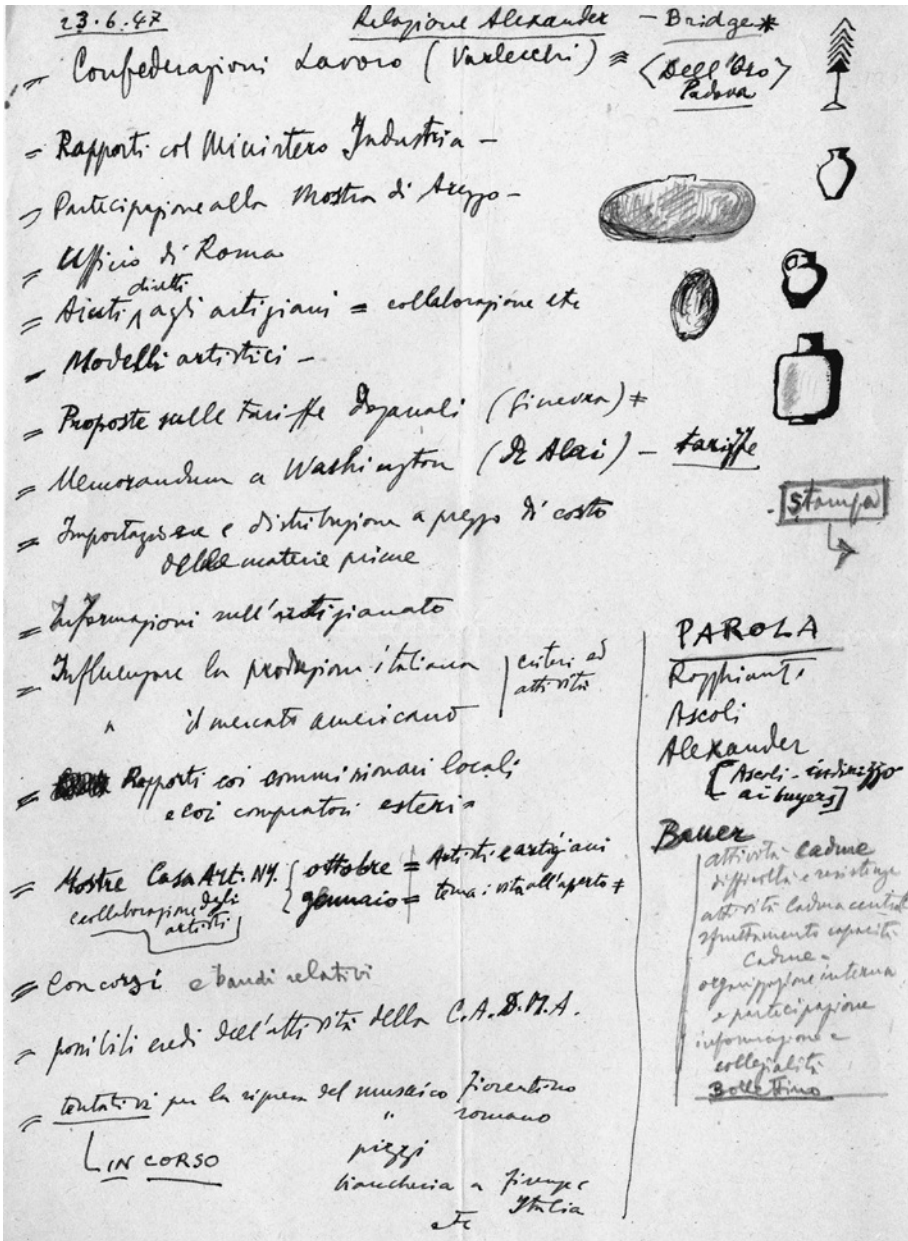 23.6.47 Relazione Alexander - Bridge *
= Confederazioni Lavoro (Varlecchi) = (Dell'Oro)
Padova
= Rapporti col Ministero Industria -
= Partecipazione alla Mostra di Arezzo -
= Ufficio di Roma
diretti
= Aiuti agli artigiani = collaborazione etc
= Modelli artistici -
= Proposte sulle tariffe doganali (Ginevra) ≠
= Memorandum a Washington (De Alai) - tariffe
Stampa
= Importazione e distribuzione a prezzo di costo
delle materie prime
= Informazioni sull'artigianato
= Influenzare la produzione italiana
" il mercato americano
criteri ed
attività
= Rapporti coi commissionari locali
e coi compratori esteri =
= Mostre Casa Art. NY. ottobre = Artisti e artigiani
gennaio = tema: vita all'aperto ≠
e collaborazione degli
artisti
= Concorsi e bandi relativi
= possibili eredi dell'attività della C.A.D.M.A.
= tentativi per la ripresa del musaico fiorentino
" romano
IN CORSO
pizzi
biancheria a Firenze
Italia
etc
PAROLA
Ragghianti
Ascoli
Alexander
[Ascoli - indirizzo
ai buyers]
Bauer
attività cadme
difficoltà e resistenze
attività Cadma centrale
sfruttamento capacità
Cadme -
organizzazione interna
e partecipazione
informazione e
collegialità
Bollettino